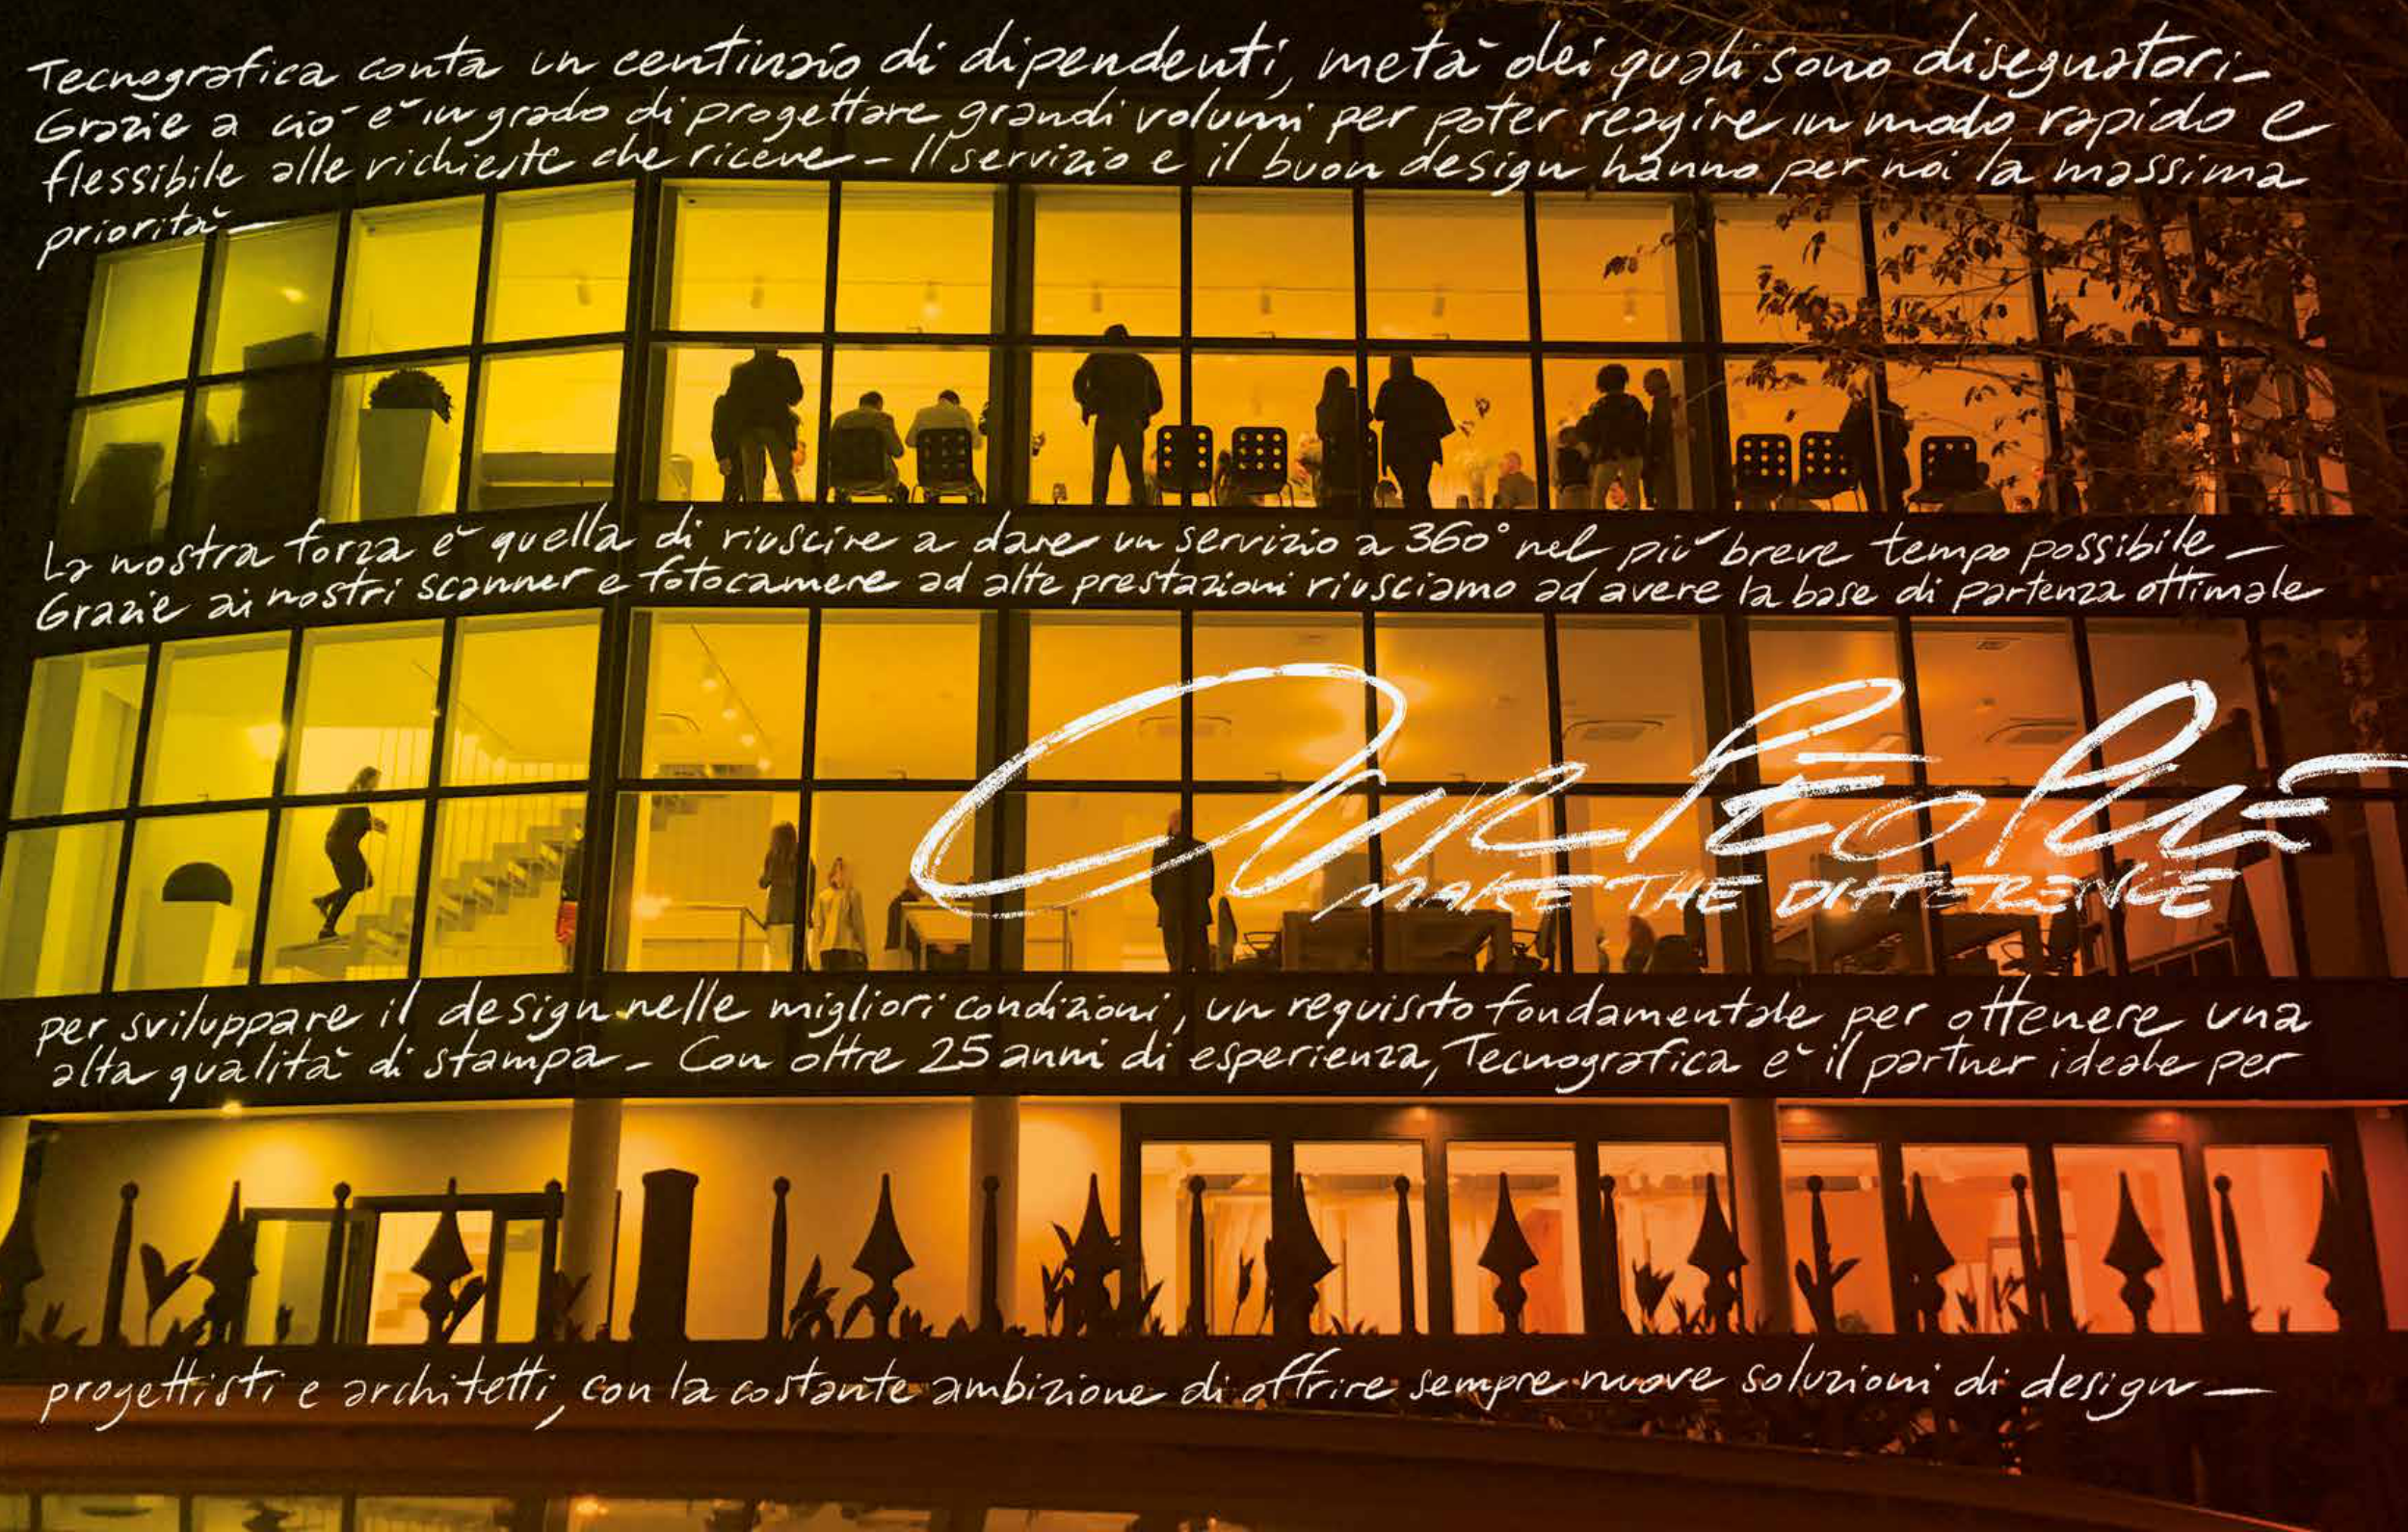 Tecnografica conta un centinaio di dipendenti, metà dei quali sono disegnatori-
Grazie a ciò è in grado di progettare grandi volumi per poter reagire in modo rapido e
flessibile alle richieste che riceve - Il servizio e il buon design hanno per noi la massima
priorità -
La nostra forza è quella di riuscire a dare un servizio a 360° nel più breve tempo possibile -
Grazie ai nostri scanner e fotocamere ad alte prestazioni riusciamo ad avere la base di partenza ottimale
OUR PEOPLE
MAKE THE DIFFERENCE
per sviluppare il design nelle migliori condizioni, un requisito fondamentale per ottenere una
alta qualità di stampa - Con oltre 25 anni di esperienza, Tecnografica è il partner ideale per
progettisti e architetti, con la costante ambizione di offrire sempre nuove soluzioni di design -